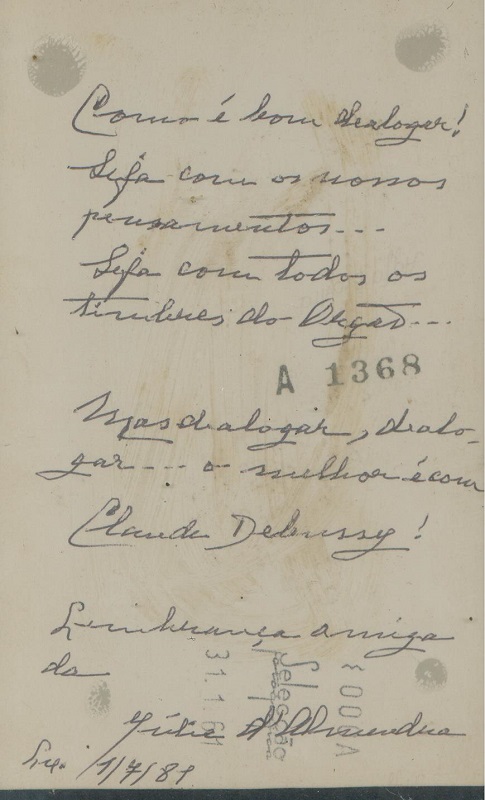 Como é bom dialogar!
Seja com os nossos
pensamentos...
Seja com todos os
timbres do Orgão...
A 1368
Mas dialogar, dialo-
gar... o melhor é com
Claude Debussy!
Lembrança amiga
da
Júlia d'Almendra
Lx. 1/7/81
31.1.61
Selecção
A000